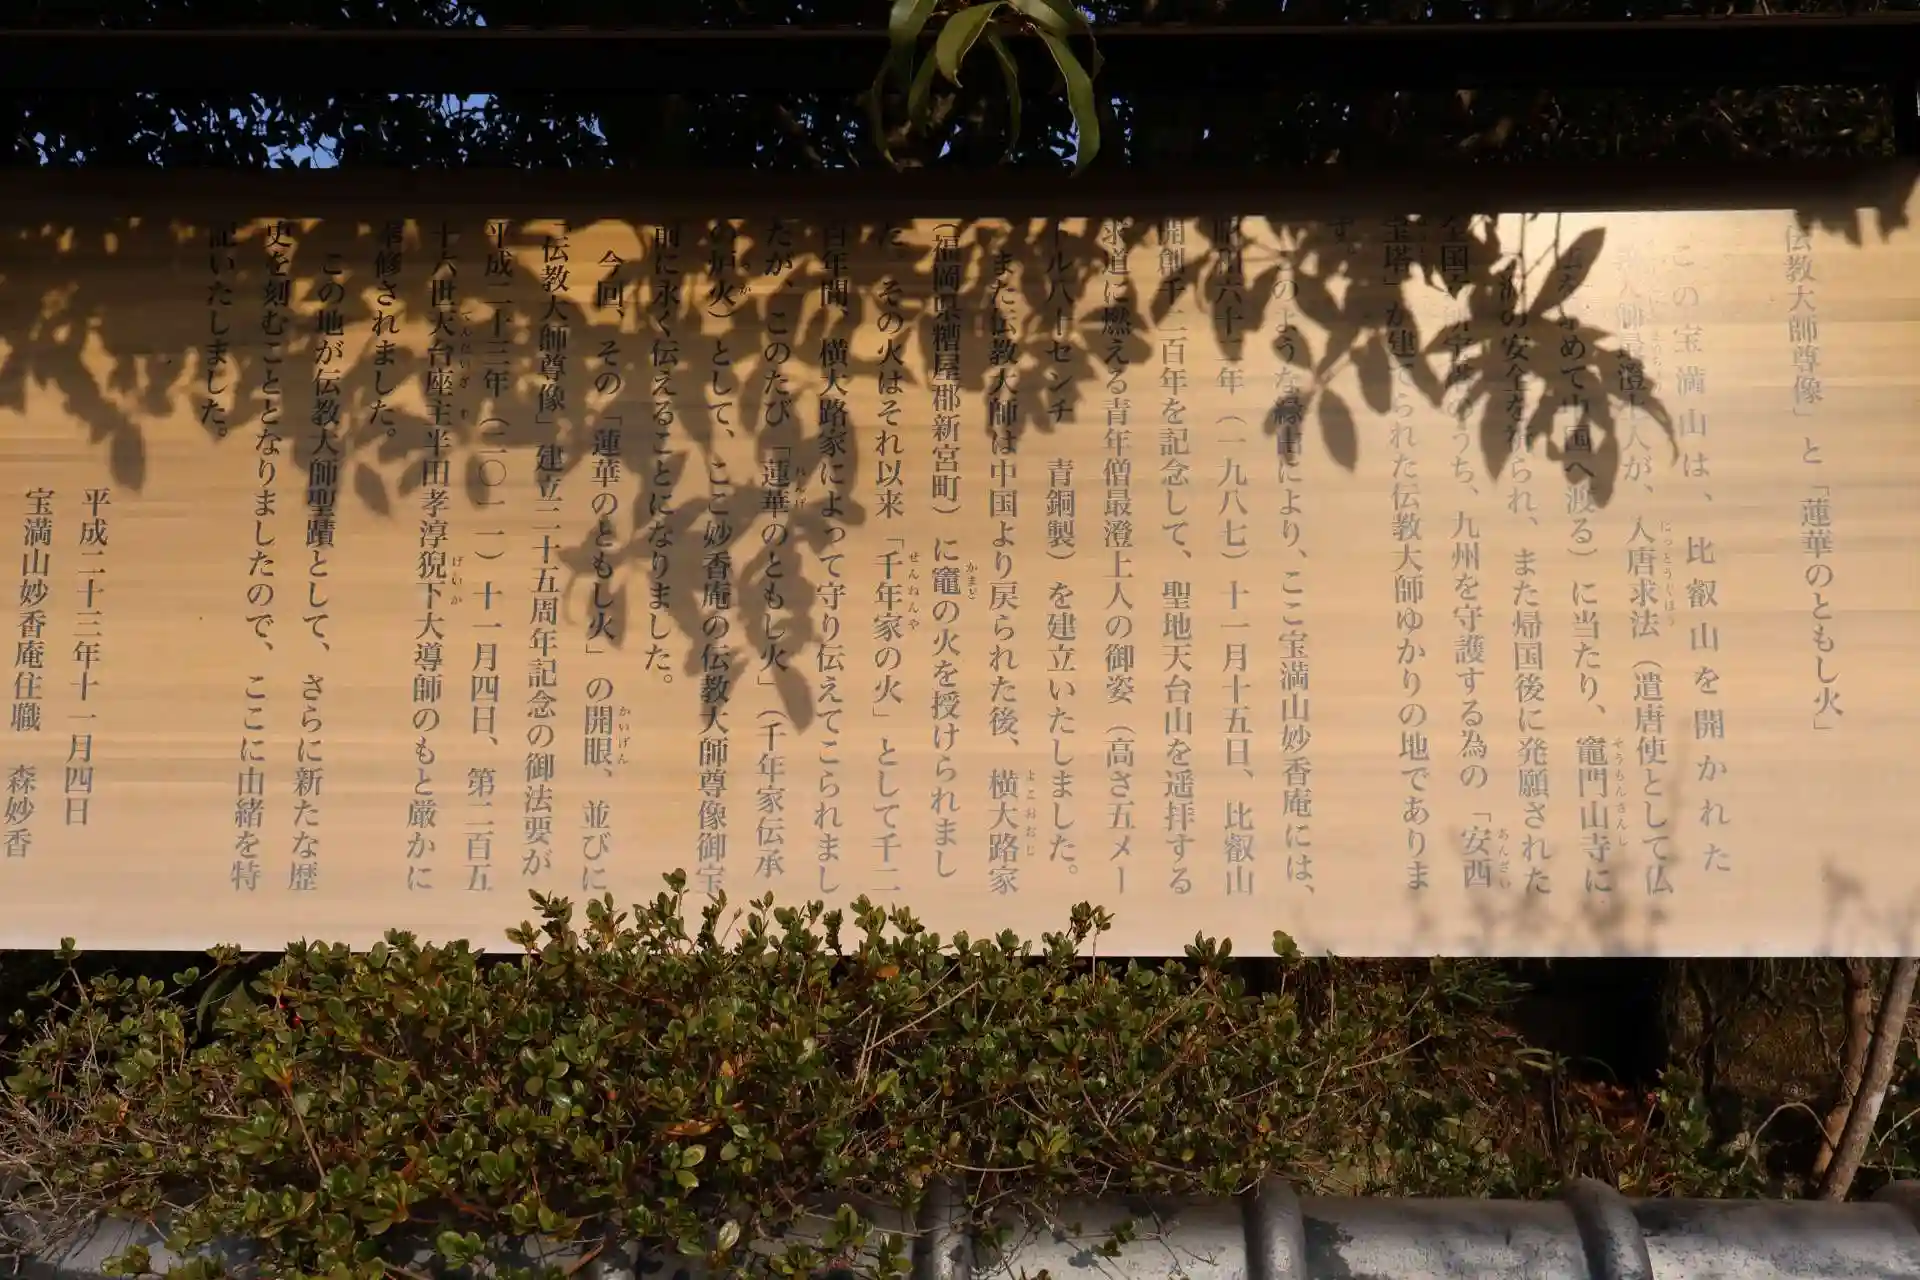 伝教大師尊像」と「蓮華のともし火」
この宝満山は、比叡山を開かれた
大師最澄上人が、入唐求法（遣唐使として仏
めて中国へ渡る）に当たり、竈門山寺に
の安全を祈られ、また帰国後に発願された
全国 のうち、九州を守護する為の「安西
宝塔」が建てられた伝教大師ゆかりの地でありま
す。
このような縁由により、ここ宝満山妙香庵には、
昭和六十二年（一九八七）十一月十五日、比叡山
開創千二百年を記念して、聖地天台山を遥拝する
求道に燃える青年僧最澄上人の御姿（高さ五メー
トル八十センチ　青銅製）を建立いたしました。
また伝教大師は中国より戻られた後、横大路家
（福岡県糟屋郡新宮町）に竈の火を授けられまし
た。その火はそれ以来「千年家の火」として千二
百年間、横大路家によって守り伝えてこられまし
たが、このたび「蓮華のともし火」（千年家伝承
の炉火）として、ここ妙香庵の伝教大師尊像御宝
前に永く伝えることになりました。
今回、その「蓮華のともし火」の開眼、並びに
「伝教大師尊像」建立二十五周年記念の御法要が
平成二十三年（二〇一一）十一月四日、第二百五
十六世天台座主半田孝淳猊下大導師のもと厳かに
奉修されました。
この地が伝教大師聖蹟として、さらに新たな歴
史を刻むこととなりましたので、ここに由緒を特
記いたしました。
平成二十三年十一月四日
宝満山妙香庵住職　森妙香